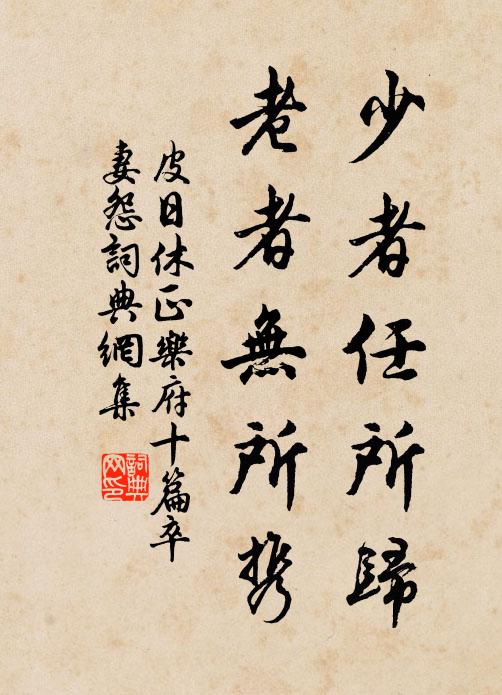 少者任所歸
老者無所攜
皮日休正樂府十篇卒
妻怨詞典網集
詞典網印